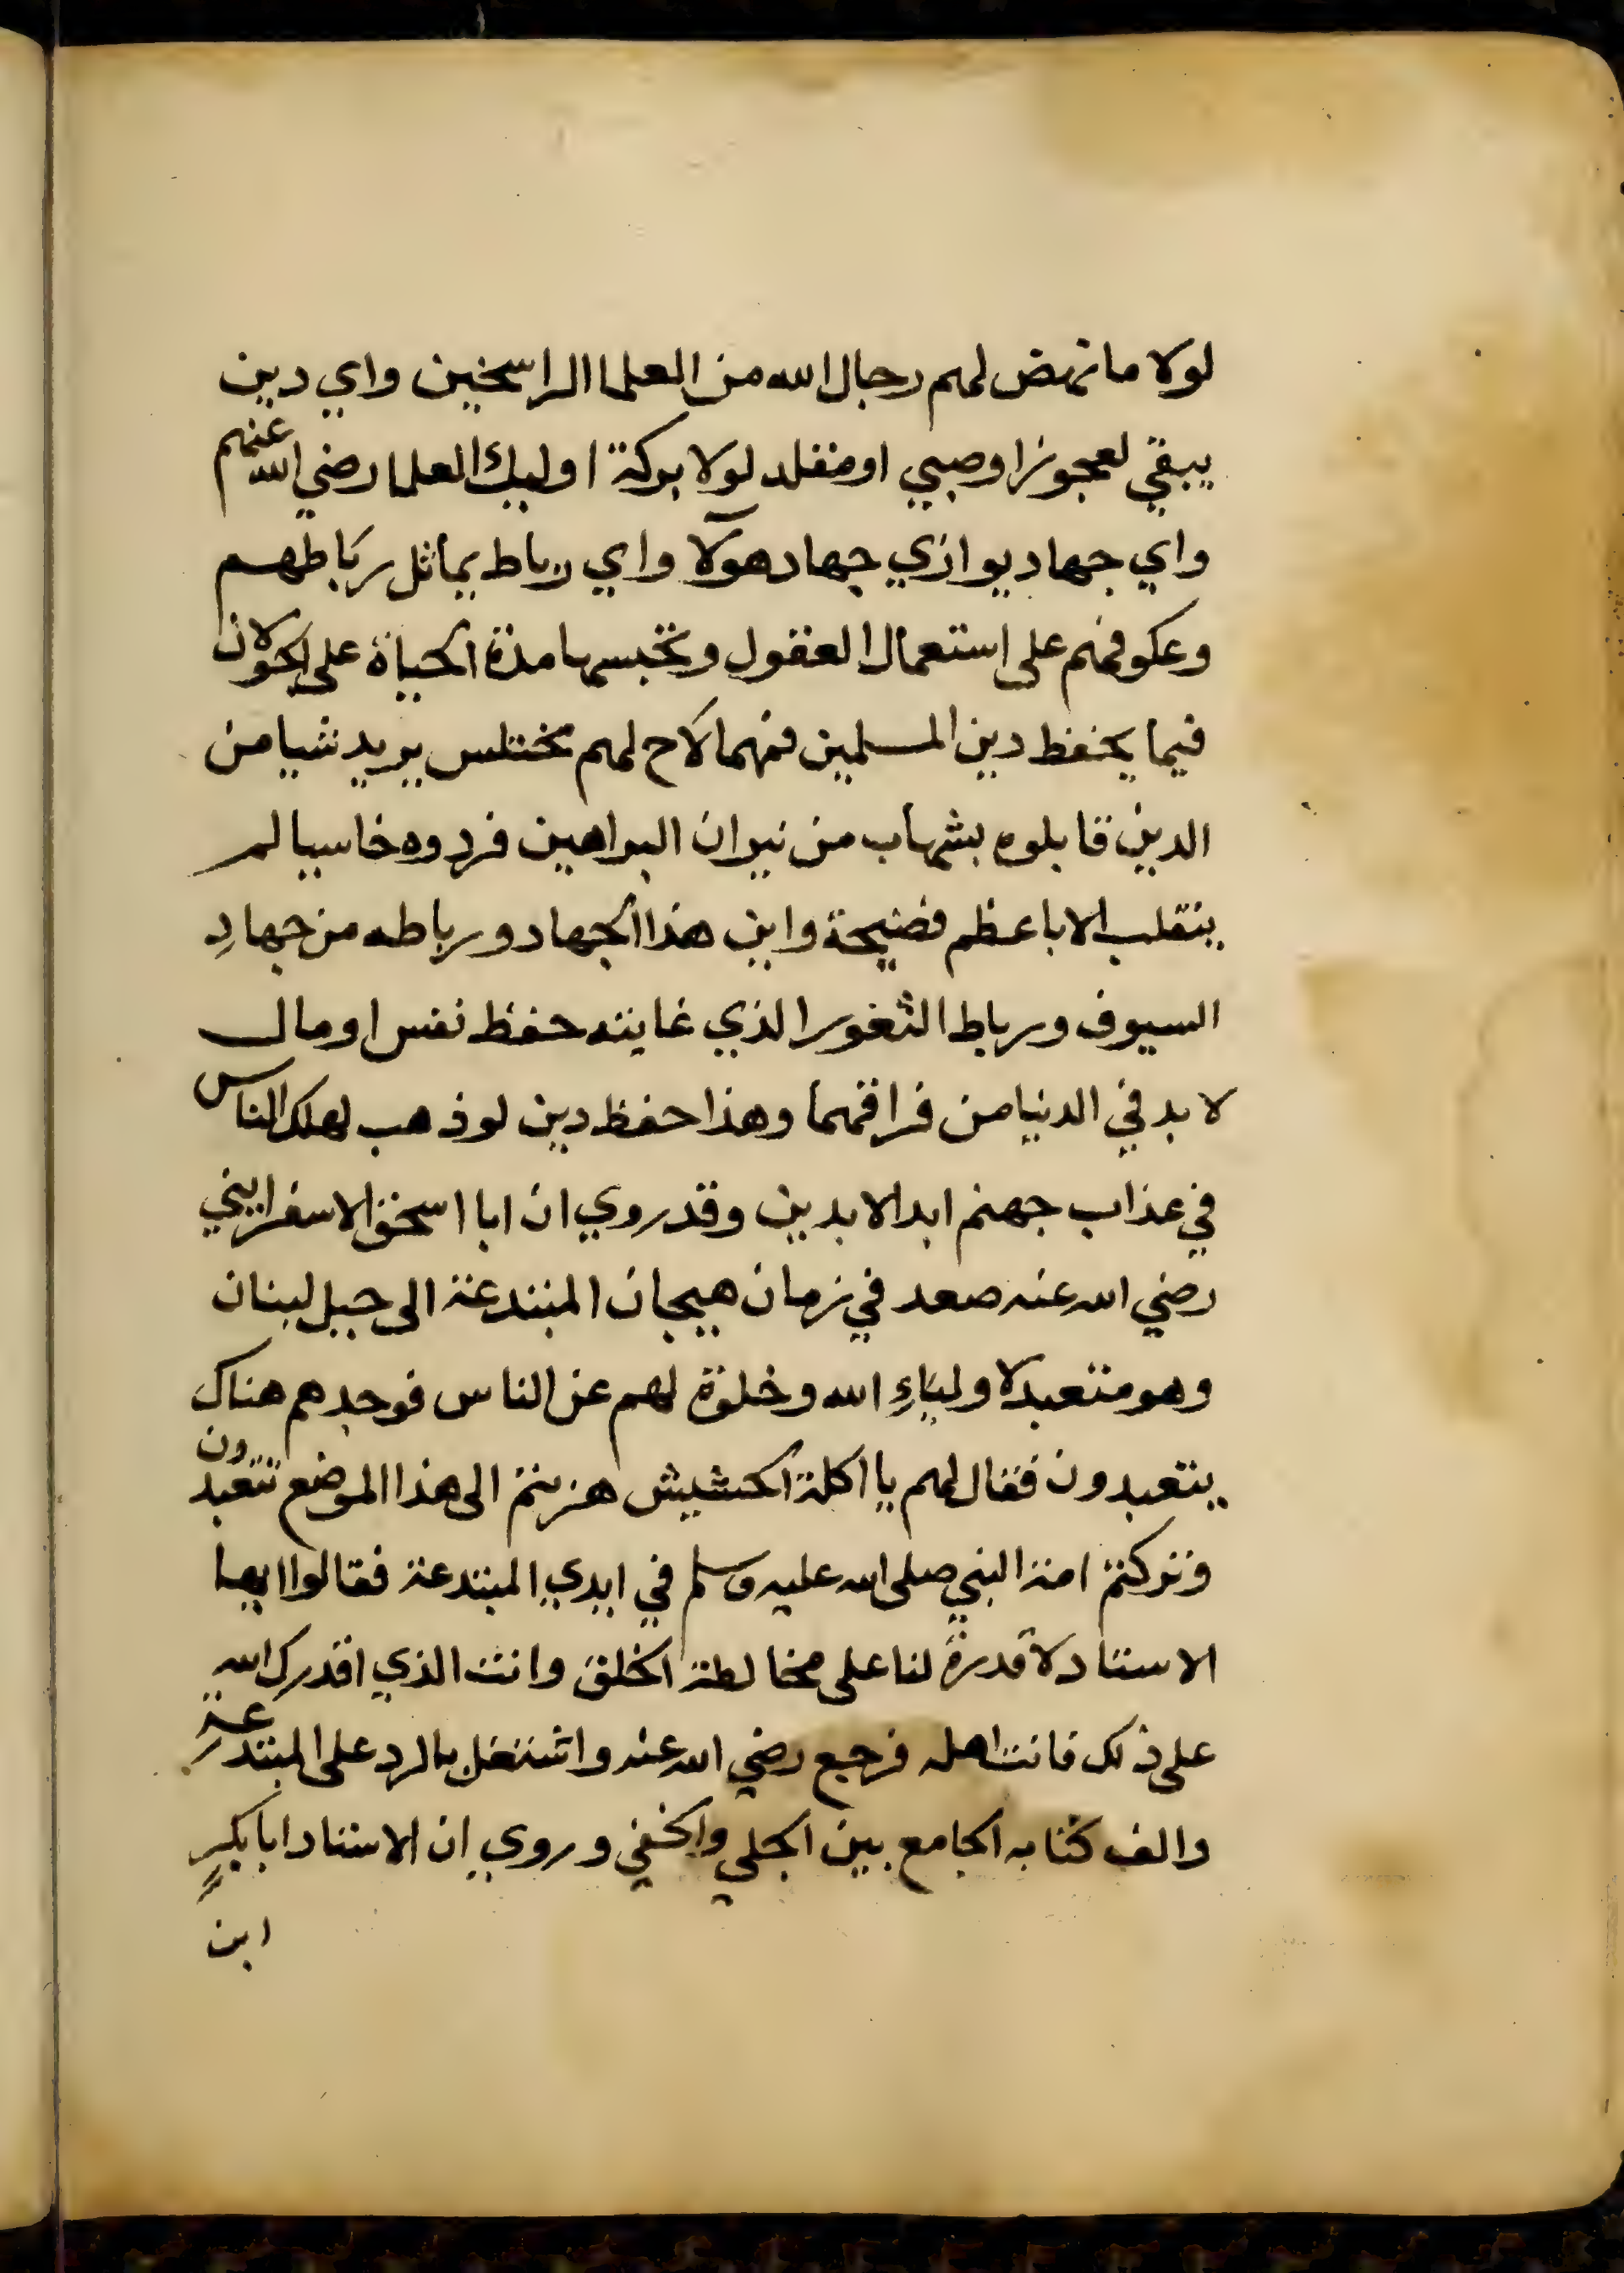 لولا ما نهض لهم رجال الله من العلما الراسخين واي دين
يبقي لعجوز او صبي او مقلد لولا بركة اوليك العلما رضي الله عنهم
واي جهاد يوازي جهاد هولآ واي رباط يماثل رباطهم
وعكوفهم على استعمال العقول وتحبسها مدة الحياة على الجولان
فيما يحفظ دين المسلمين فمهما لاح لهم مختلس يريد شيا من
الدين قابلوه بشهاب من نيران البراهين فردوه خاسيا لم
ينقلب الا باعظم فضيحة واين هذا الجهاد ورباطه من جهادِ
السيوف ورباط الثغور الذي غايته حفظ نفس او مال
لا بد في الدنيا من فراقهما وهذا حفظ دين لو ذهب لهلك الناس
في عذاب جهنم ابد الابدين وقد روي ان ابا اسحق الاسفرايني
رضي الله عنه صعد في زمان هيجان المبتدعة الى جبل لبنان
وهو متعبد لاولياءِ الله وخلوة لهم عن الناس فوجدهم هناك
يتعبدون فقال لهم يا اكلة الحشيش هربتم الى هذا الموضع تتعبدون
وتركتم امة النبي صلى الله عليه وسلم في ايدي المبتدعة فقالوا ايها
الاستاد لا قدرةً لنا على مخالطة الخلق وانت الذي اقدرك الله
على ذلك فانت اهله فرجع رضي الله عنه واشتغل بالرد على المبتدعةِ
والف كتابه الجامع بين الجلي والخفي وروي ان الاستاد ابا بكرٍ
ابن